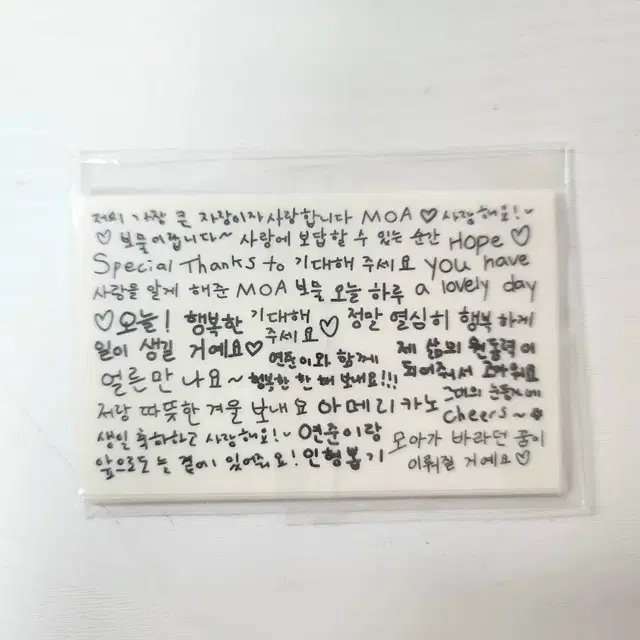 저의 가장 큰 자랑이자 사랑합니다 MOA ♡ 사랑해요!~
♡ 보물이랍니다~ 사랑에 보답할 수 있는 순간 Hope ♡
Special Thanks to 기대해 주세요 you have
사랑을 알게 해준 MOA 보물 오늘 하루 a lovely day
♡오늘! 행복한 기대해 주세요♡ 정말 열심히 행복하게
일이 생길 거예요♡ 연준이와 함께 제 삶의 원동력이
얼른 만나요~ 행복한 한 해 보내요!!! 되어줘서 고마워요
저랑 따뜻한 겨울 보내요 아메리카노 그대의 눈동자에
Cheers~
생일 축하하고 사랑해요!~ 연준이랑 모아가 바라던 꿈이
앞으로도 늘 곁에 있어줘요! 인형뽑기 이뤄질 거예요♡